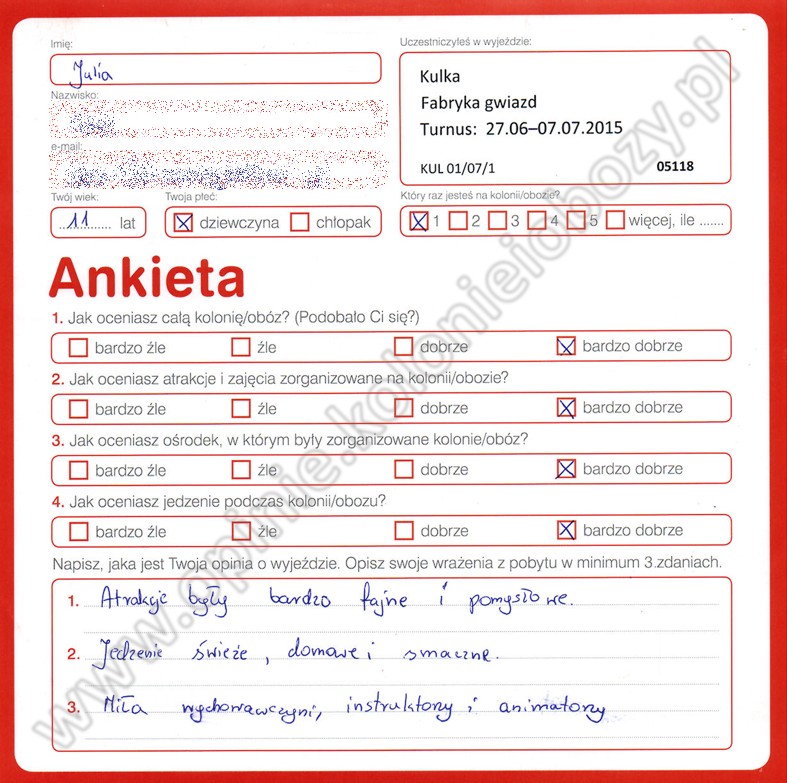 Imię:
Julia
Nazwisko:
e-mail:
Twój wiek:
11 lat
Twoja płeć:
dziewczyna chłopak
Uczestniczyłeś w wyjeździe:
Kulka
Fabryka gwiazd
Turnus: 27.06–07.07.2015
KUL 01/07/1 05118
Który raz jesteś na kolonii/obozie?
1 2 3 4 5 więcej, ile .......
Ankieta
1. Jak oceniasz całą kolonię/obóz? (Podobało Ci się?)
bardzo źle źle dobrze bardzo dobrze
2. Jak oceniasz atrakcje i zajęcia zorganizowane na kolonii/obozie?
bardzo źle źle dobrze bardzo dobrze
3. Jak oceniasz ośrodek, w którym były zorganizowane kolonie/obóz?
bardzo źle źle dobrze bardzo dobrze
4. Jak oceniasz jedzenie podczas kolonii/obozu?
bardzo źle źle dobrze bardzo dobrze
Napisz, jaka jest Twoja opinia o wyjeździe. Opisz swoje wrażenia z pobytu w minimum 3.zdaniach.
1. Atrakcje były bardzo fajne i pomysłowe.
2. Jedzenie świeże, domowe i smaczne.
3. Miła wychowawczyni, instruktorzy i animatorzy
www.opinie.kolonieiobozy.pl